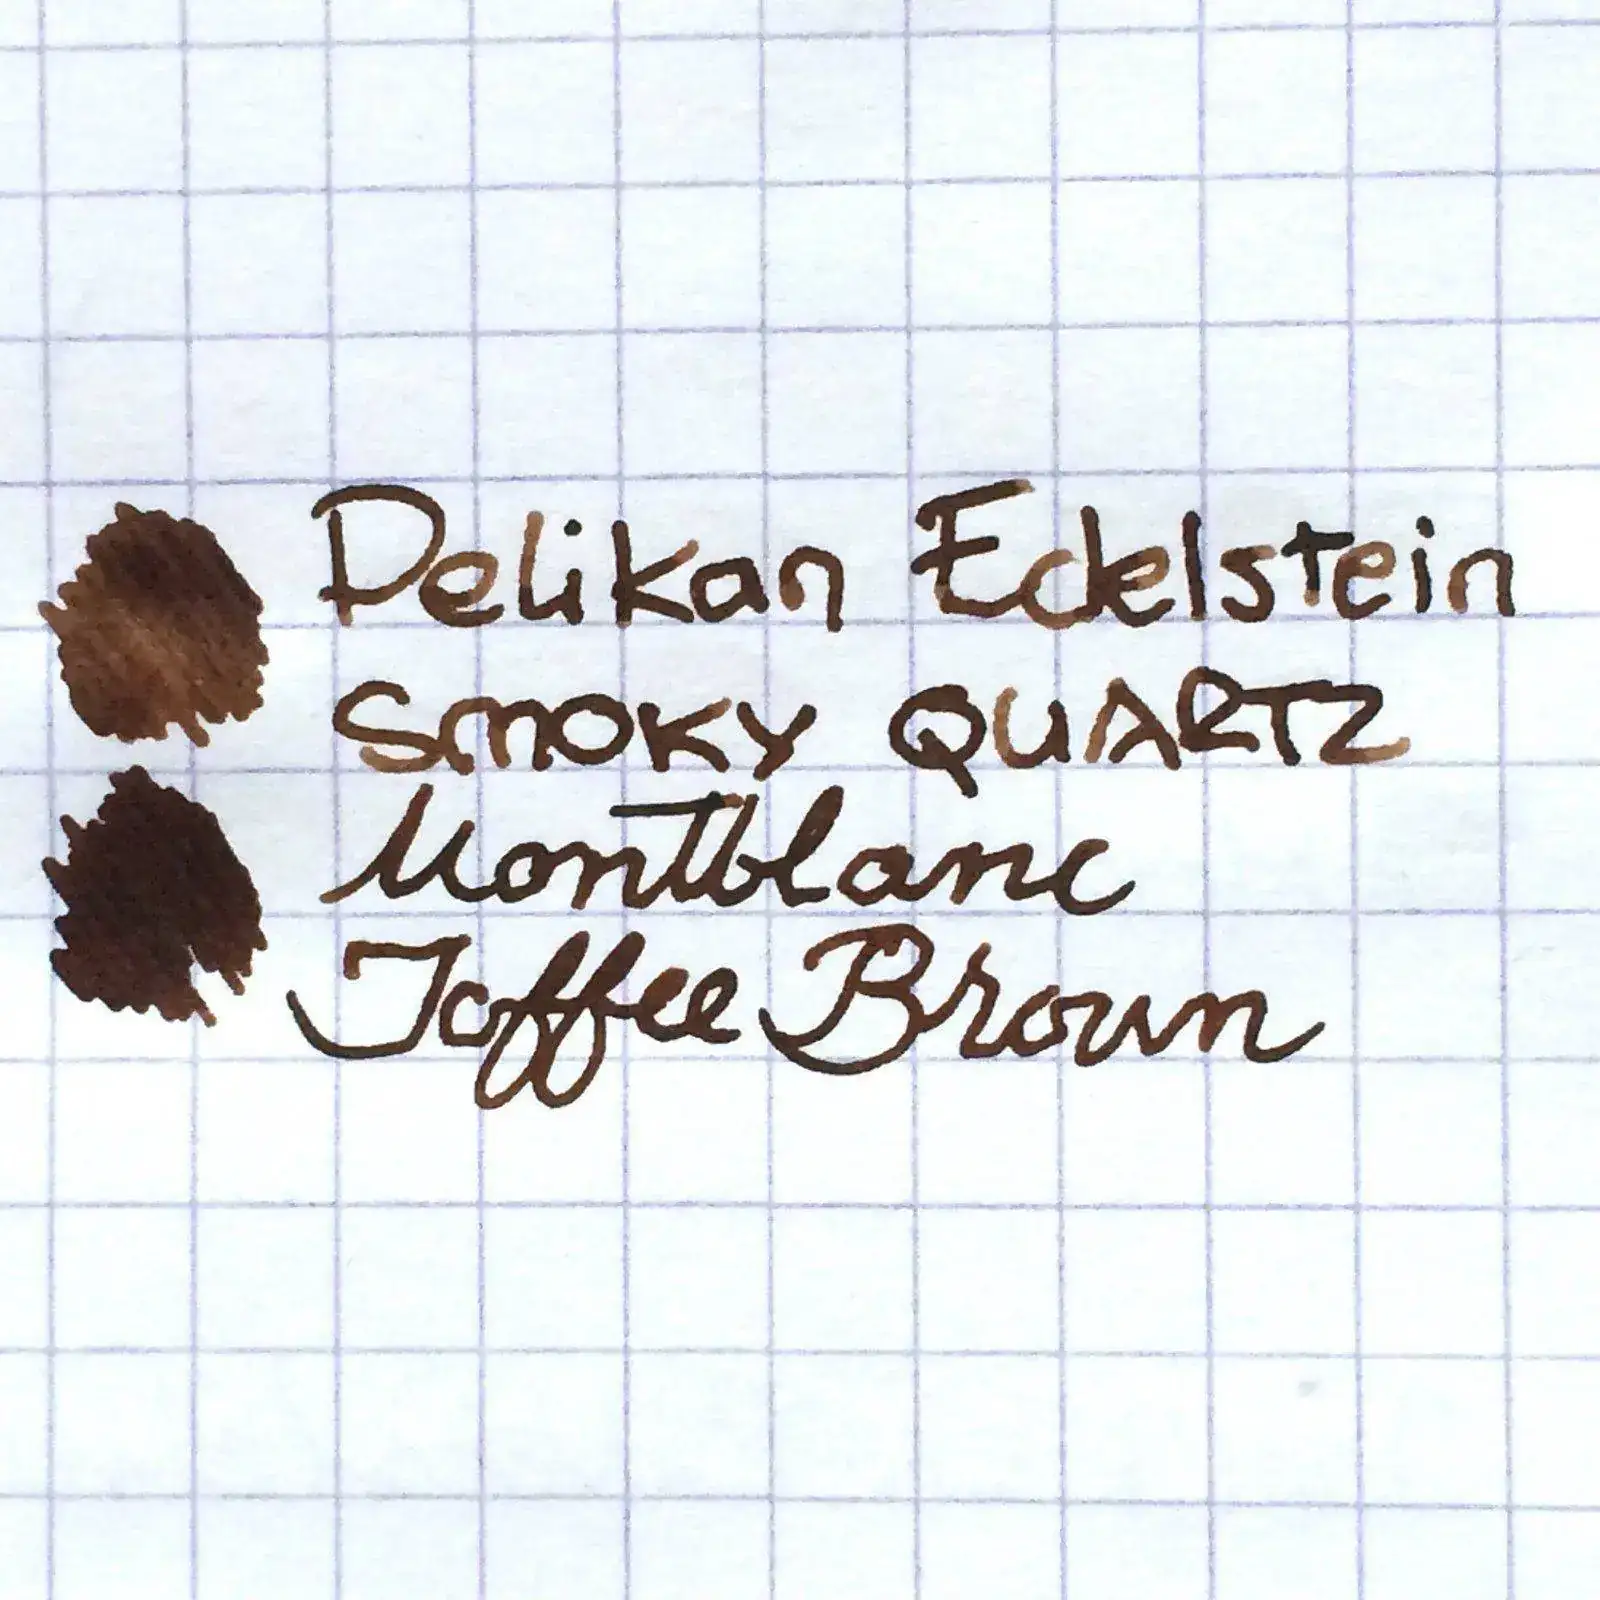 Pelikan Edelstein
SMOKY QUARTZ
Montblanc
Toffee Brown